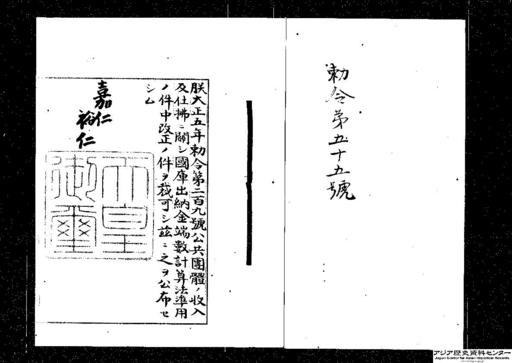 勅令第五十五號
朕大正五年勅令第二百九號公共團體ノ收入
及仕拂ニ關シ國庫出納金端數計算法準用
ノ件中改正ノ件ヲ裁可シ茲ニ之ヲ公布セ
シム
嘉仁
裕仁
天皇
御璽
アジア歴史資料センター
Japan Center for Asian Historical Records